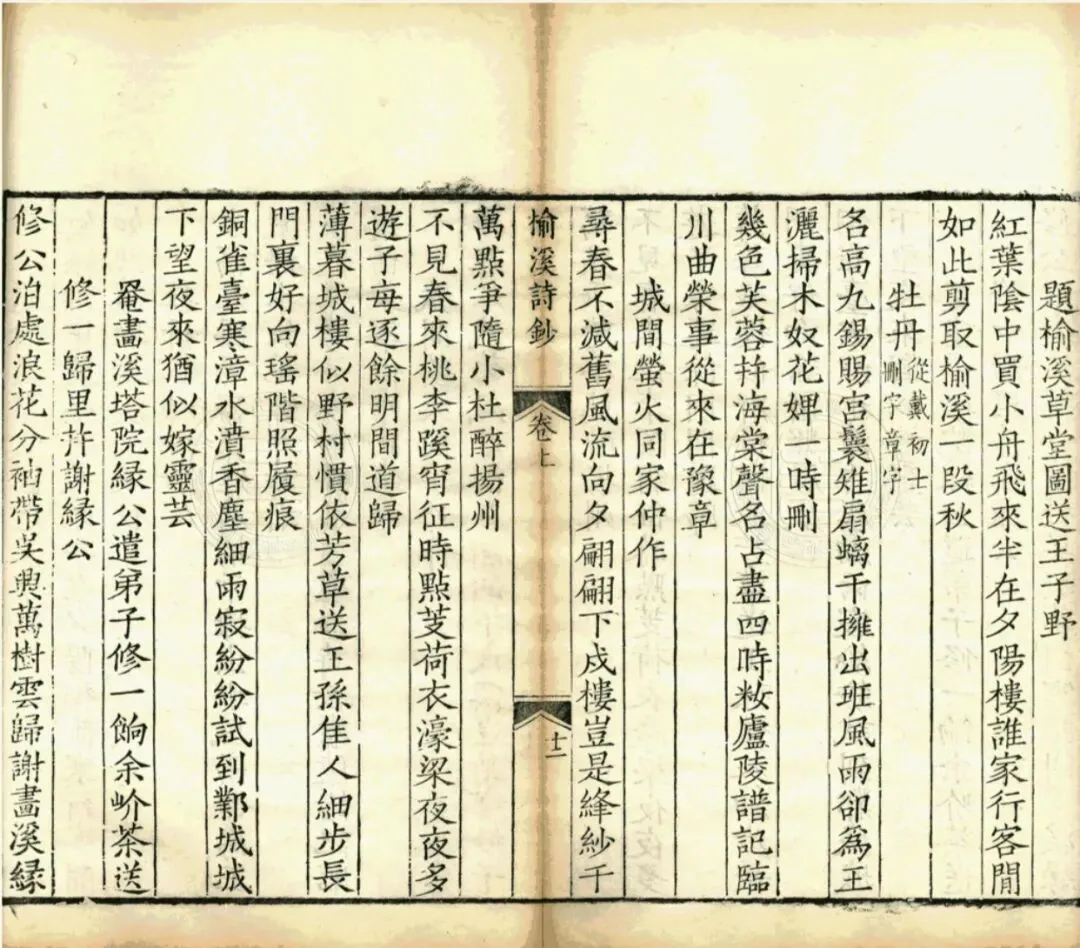 題榆溪草堂圖送王子野
紅葉陰中買小舟飛來半在夕陽樓誰家行客閒
如此剪取榆溪一段秋
牡丹從戴初士刪字章字
名高九錫賜宮鬟雉扇螭干擁出班風雨卻為王
灑掃木奴花婢一時刪
幾色芙蓉幷海棠聲名占盡四時妝廬陵譜記臨
川曲榮事從來在豫章
城間螢火同家仲作
尋春不減舊風流向夕翩翩下戍樓豈是絳紗千
榆溪詩鈔
卷上
十一
萬點爭隨小杜醉揚州
不見春來桃李蹊宵征時點芰荷衣濠梁夜夜多
遊子每逐餘明間道歸
薄暮城樓似野村慣依芳草送王孫佳人細步長
門裏好向瑤階照履痕
銅雀臺寒漳水濆香塵細雨寂紛紛試到鄴城城
下望夜來猶似嫁靈芸
罨畫溪塔院緣公遣弟子修一餉余岕茶送
修一歸里幷謝緣公
修公泊處浪花分袖帶吳興萬樹雲歸謝畫溪緣